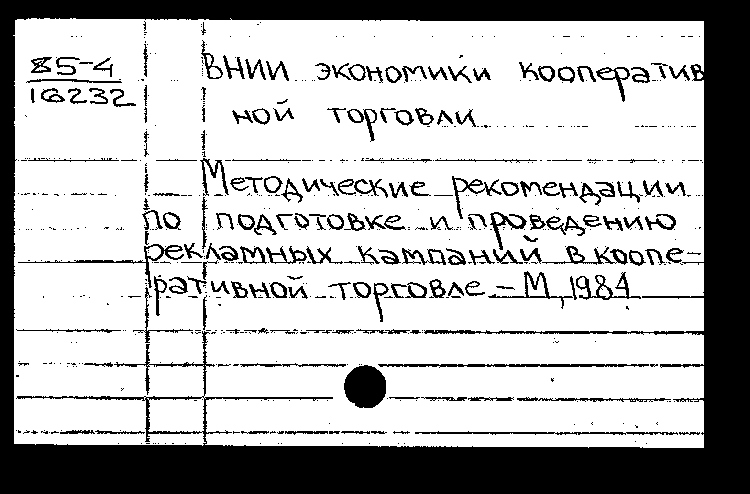 85-4
16232
ВНИИ экономики кооператив
ной торговли.
Методические рекомендации
по подготовке и проведению
рекламных кампаний в коопе-
ративной торговле. - М, 1984